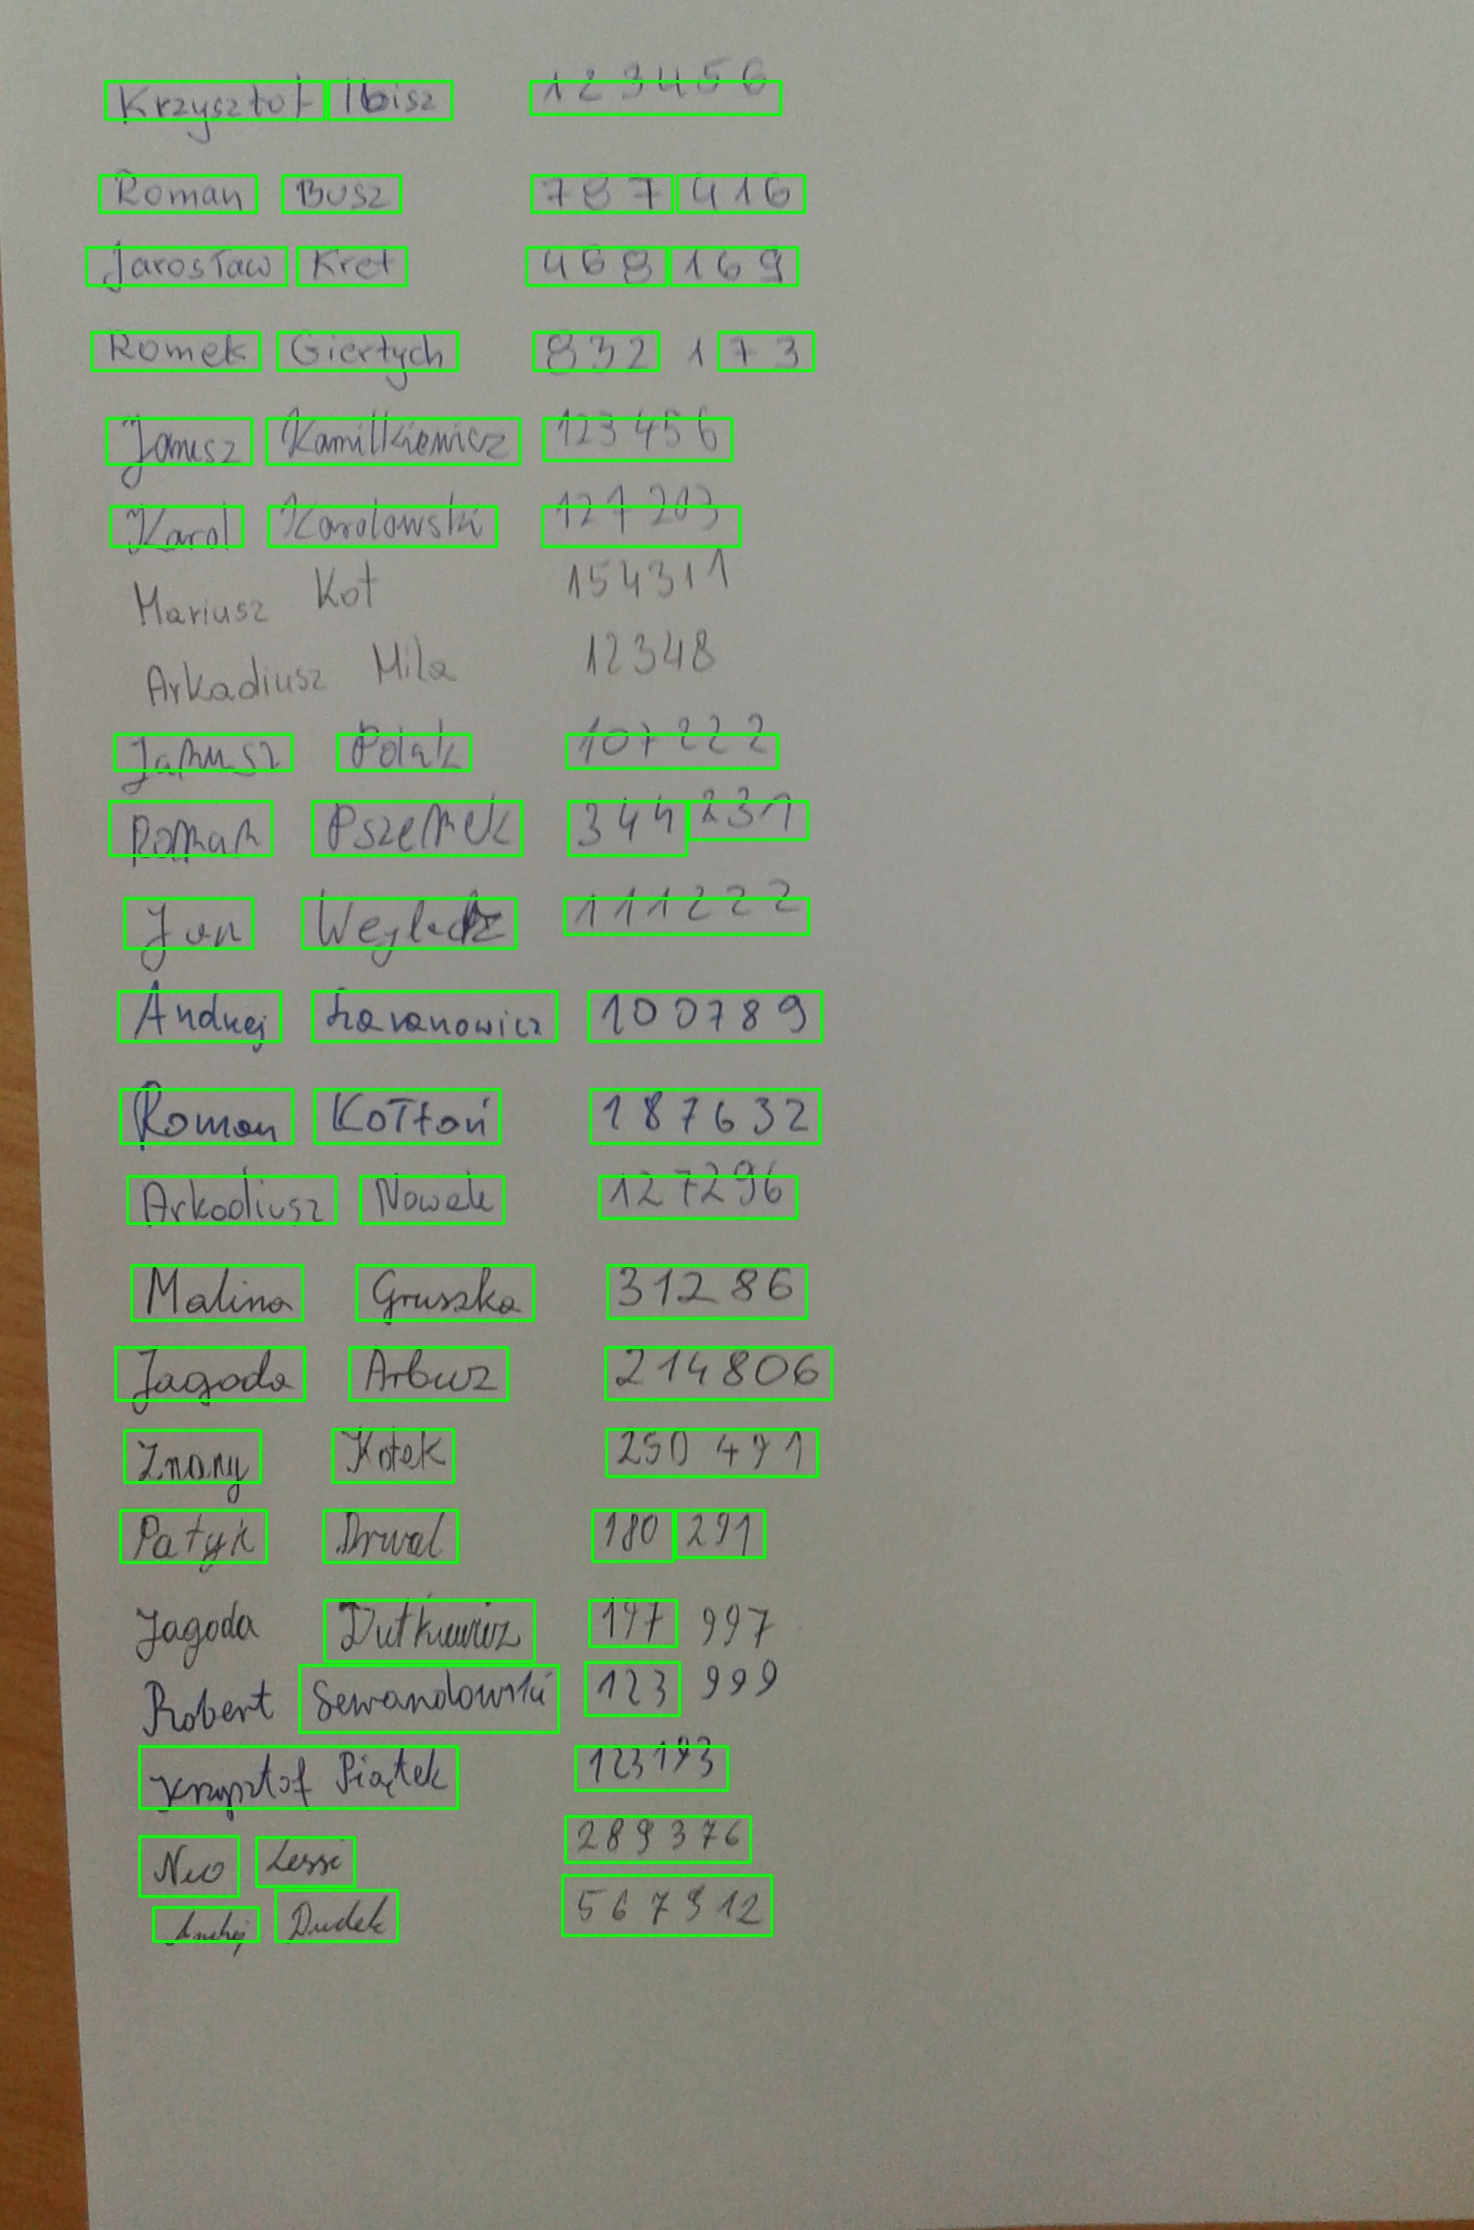 Krzysztof Ibisz 123456
Roman Busz 787 416
Jarosław Kret 468 169
Romek Giertych 832 173
Janusz Kamilkiewicz 123456
Karol Karolowski 127 213
Mariusz Kot 154311
Arkadiusz Mila 12348
Janusz Polak 107 222
Roman Pszemek 344 231
Jan 111222
Andrzej Łazanowicz 100789
Roman Kołtoń 187632
Arkadiusz Nowak 127296
Malina Gruszka 31286
Jagoda Arbuz 214806
Znany Kotek 250 471
Patyk Drwal 180 291
Jagoda Dutkiewicz 197 997
Robert Sewandowski 123 999
Krzysztof Piątek 123193
Neo Lessi 289376
Andrzej Dudek 567912